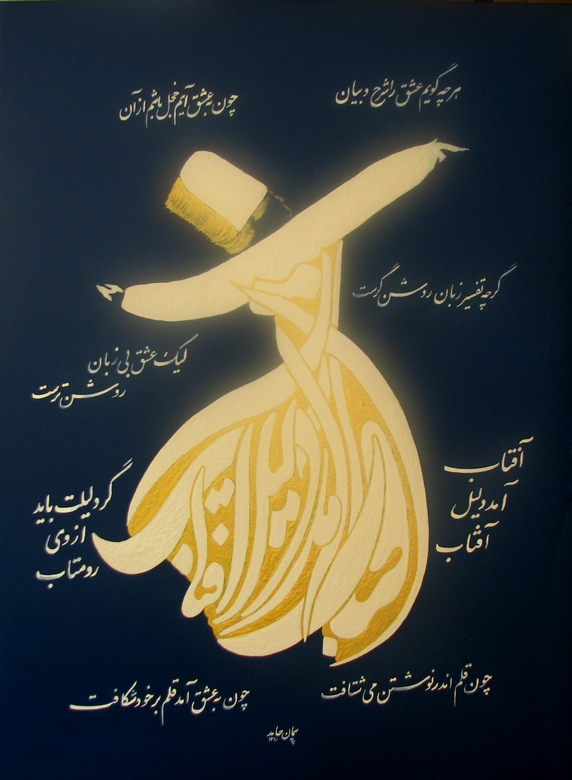 هرچه گویم عشق را شرح و بیان
چون به عشق آیم خجل باشم از آن
گرچه تفسیر زبان روشن گرست
لیک عشق بی زبان
روشن ترست
آفتاب آمد دلیل آفتاب
آفتاب
آمد دلیل
آفتاب
گر دلیلت باید
از وی
رو متاب
چون قلم اندر نوشتن می شتافت
چون به عشق آمد قلم بر خود شکافت